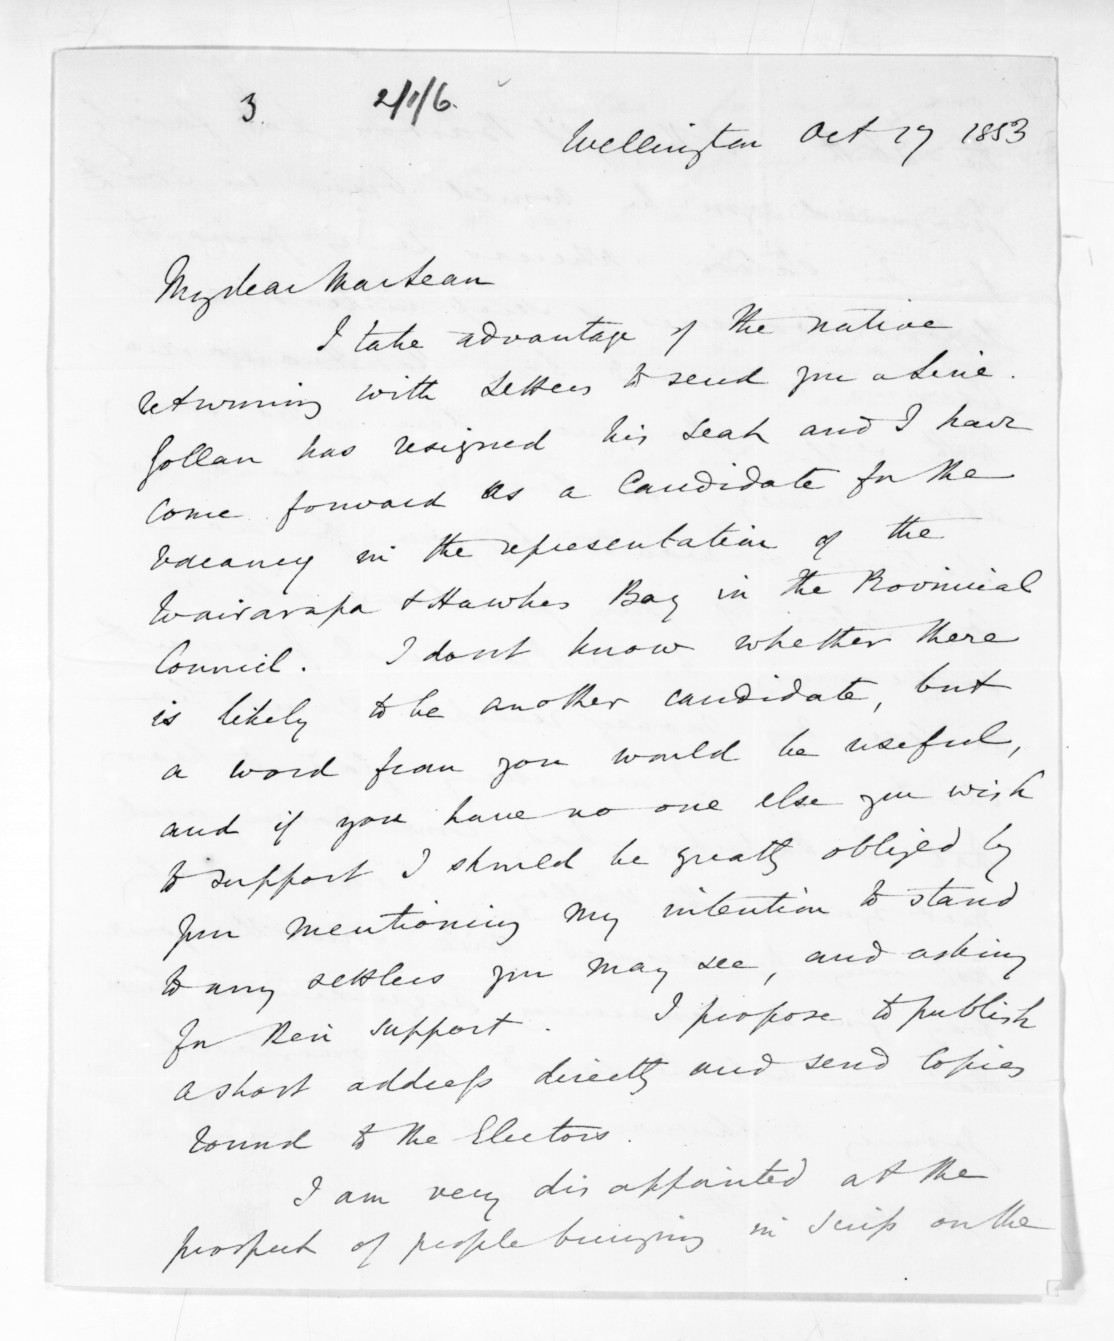 3
2/1/6.
Wellington Oct 17 1853
My dear MacLean
I take advantage of the native
returning with Letters to send you a line.
Gollan has resigned his seat and I have
come forward as a Candidate for the
vacancy in the representation of the
Wairarapa & Hawkes Bay in the Provincial
Council. I dont know whether there
is likely to be another candidate, but
a word from you would be useful,
and if you have no one else you wish
to support I should be greatly obliged by
your mentioning my intention to stand
to any settlers you may see, and asking
for their support. I propose to publish
a short address directly and send Copies
round to the Electors.
I am very disappointed at the
prospect of people bringing in Scrip on the